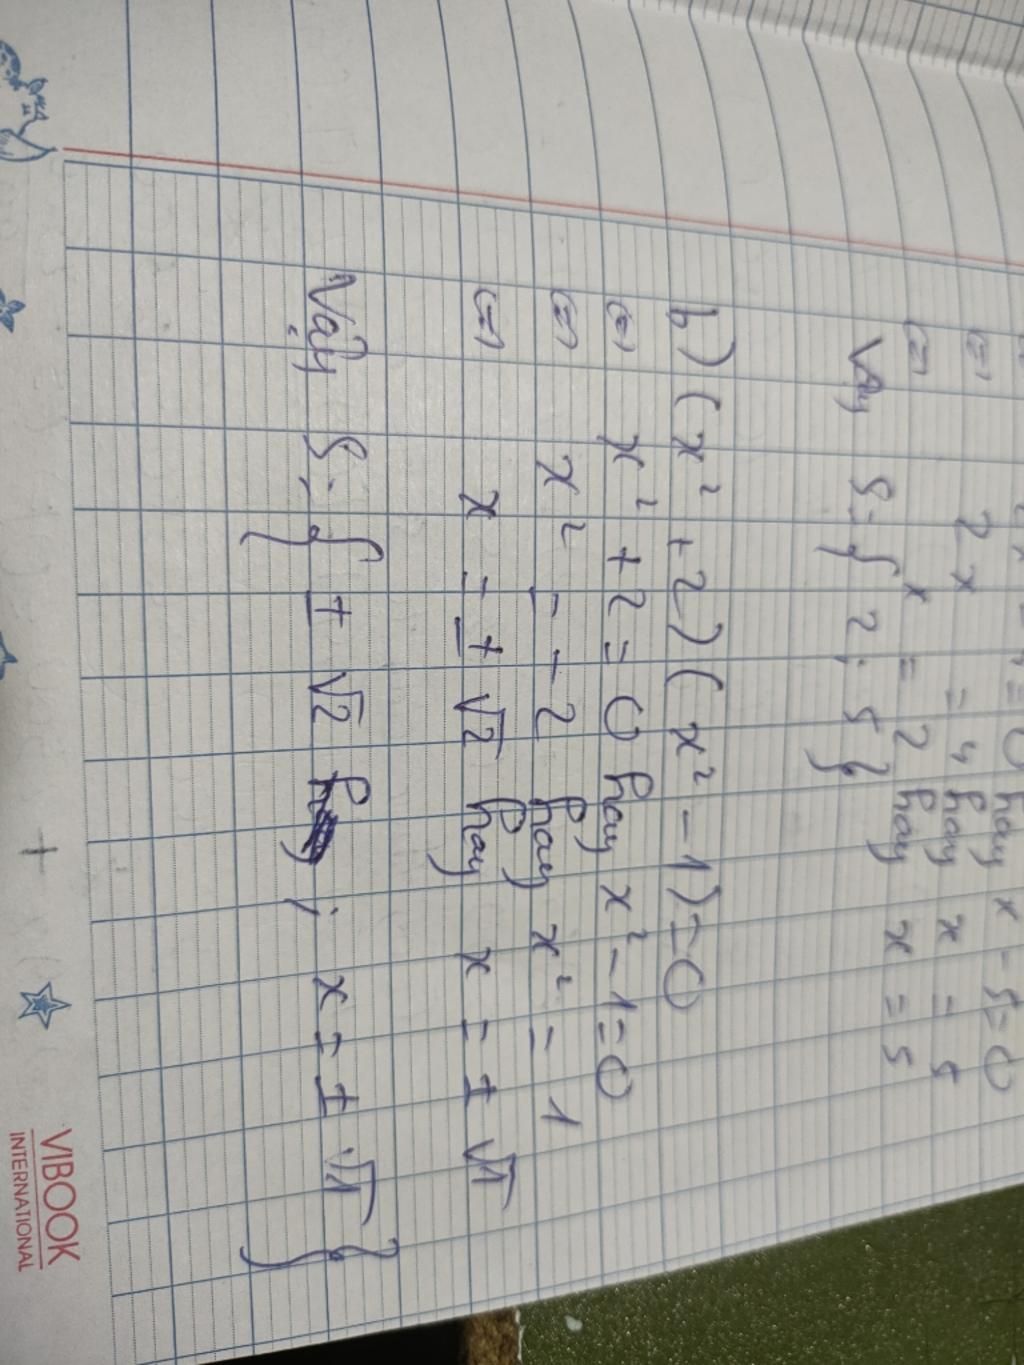 hay x - 5 = 0
<=> 2x = 4 hay x = 5
<=> x = 2 hay x = 5
Vậy S = { 2 ; 5 }
b) (x² + 2) (x² - 1) = 0
<=> x² + 2 = 0 hay x² - 1 = 0
<=> x² = - 2 hay x² = 1
<=> x = ± √2 hay x = ± √1
Vậy S = { ± √2 ; x = ± √1 }
VIBOOK
INTERNATIONAL